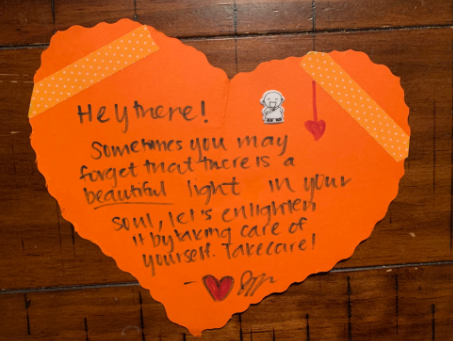 Hey there!
Sometimes you may
forget that there is a
beautiful light in your
soul, let's enlighten
it by taking care of
yourself. Take care!